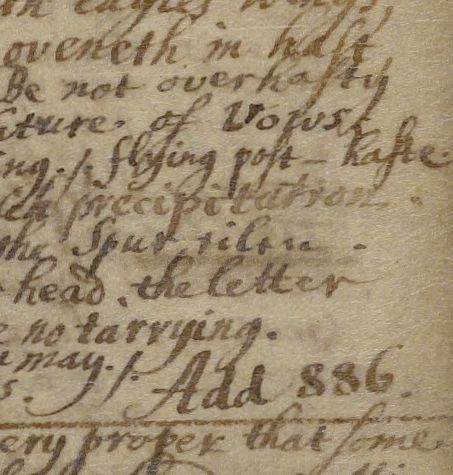 eagles wings,
oveneth in hast
Be not overhasty
iture. of Vows.
ng. /. flying post - haste.
precipitation.
the Spur
head. the letter
e no tarrying.
may. /.
s. Add 886.
ery proper that some